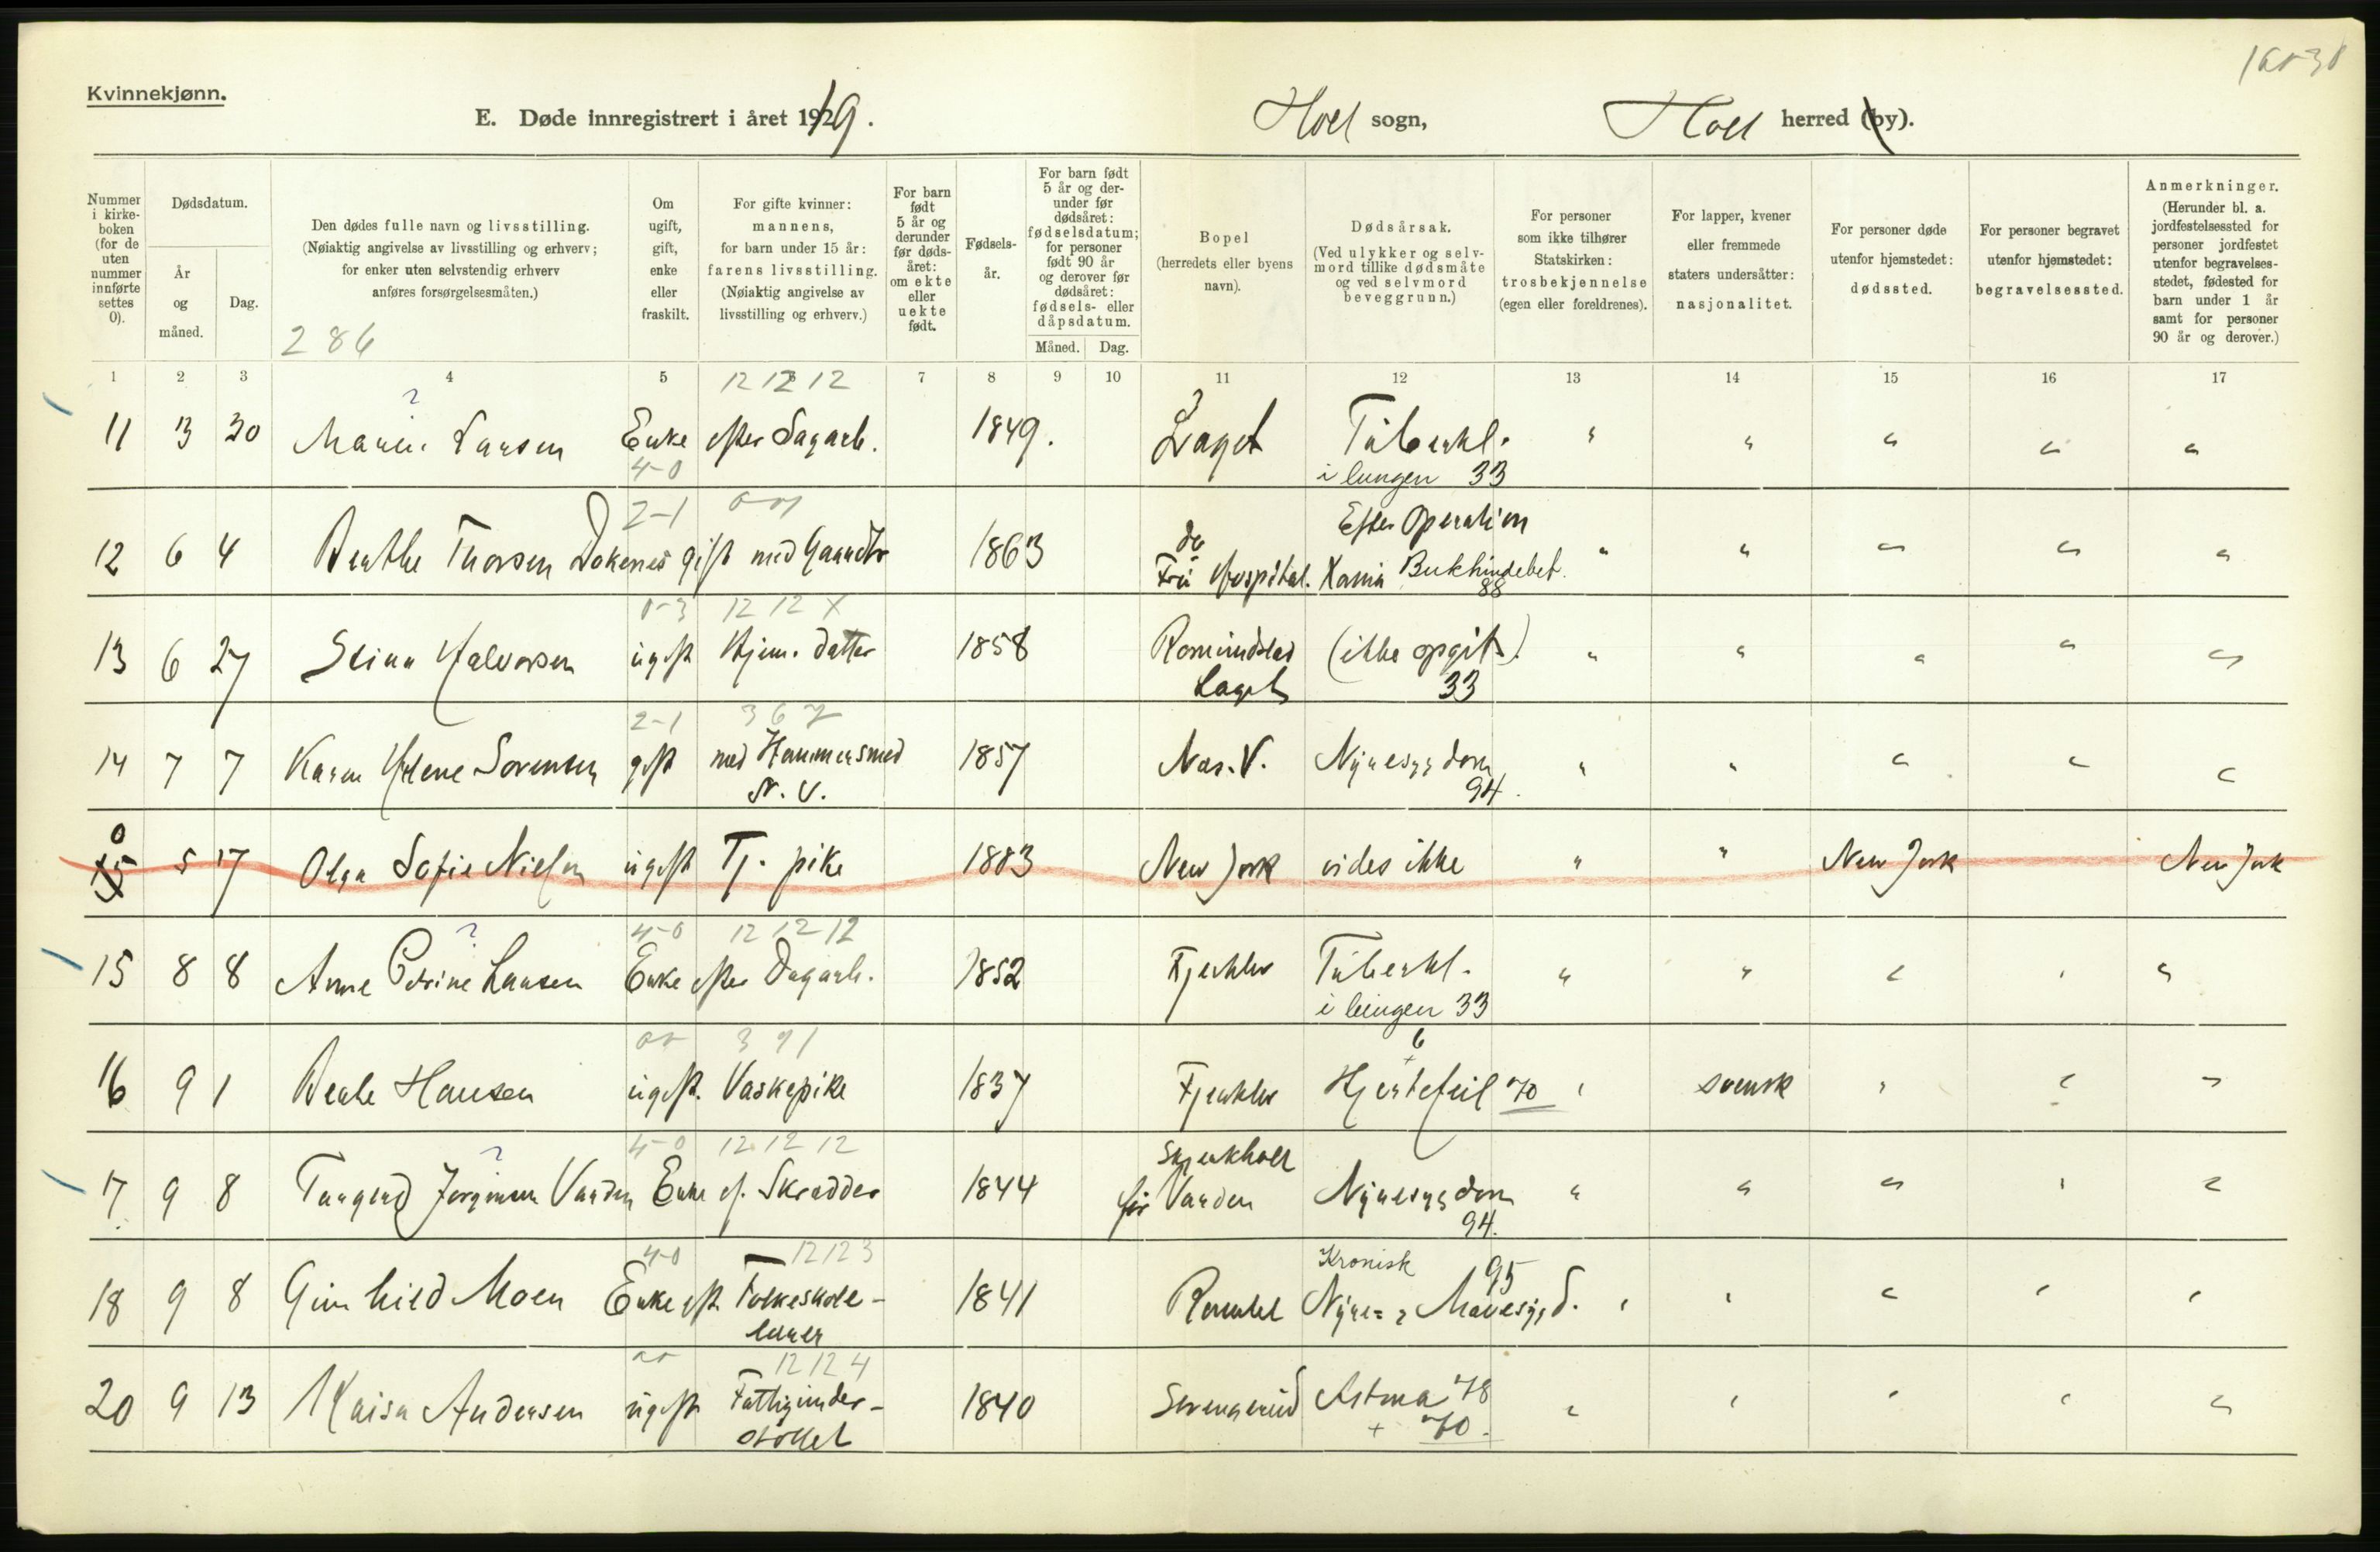 Kvinnekjønn.
E. Døde innregistrert i året 1919.
Holt sogn, Holt herred (by).
Nummer i kirkeboken (for de uten nummer innførte settes 0).
Dødsdatum.
År og måned.
Dag.
Den dødes fulle navn og livsstilling.
(Nøiaktig angivelse av livsstilling og erhverv; for enker uten selvstendig erhverv anføres forsørgelsesmåten.)
286
Om ugift, gift, enke eller fraskilt.
For gifte kvinner: mannens, for barn under 15 år: farens livsstilling.
(Nøiaktig angivelse av livsstilling og erhverv.)
For barn født 5 år og derunder før dødsåret: om ekte eller uekte født.
Fødselsår.
For barn født 5 år og derunder før dødsåret: fødselsdatum; for personer født 90 år og derover før dødsåret: fødsels- eller dåpsdatum.
Måned. Dag.
Bopel (herredets eller byens navn).
Dødsårsak.
(Ved ulykker og selvmord tillike dødsmåte og ved selvmord beveggrunn.)
For personer som ikke tilhører Statskirken: trosbekjennelse (egen eller foreldrenes).
For lapper, kvener eller fremmede staters undersåtter: nasjonalitet.
For personer døde utenfor hjemstedet: dødssted.
For personer begravet utenfor hjemstedet: begravelsessted.
Anmerkninger.
(Herunder bl. a. jordfestelsessted for personer jordfestet utenfor begravelsesstedet, fødested for barn under 1 år samt for personer 90 år og derover.)
1 2 3 4 5 7 8 9 10 11 12 13 14 15 16 17
12 12 12
11 3 30 Maren Larsen Enke efter Dagarb. 1849. Laget Tuberkl. " " " " "
4-0 i lungen 33
2-1
Efter Operation
12 6 4 Berthe Thorsen Dokenes gift med Gaardbr 1863 do Fru Hospital. Xania Bukhindebet. " " " " "
88
0-3 12 12 X
13 6 27 Stina Halvorsen ugift Hjem. datter 1858 (ikke opgit). " " " " "
Laget 33
2-1 3 6 7
14 7 7 Karen Helene Sorensen gift med Hammersmed 1857 Nes. V. Nyresygdom " " " " "
N. V. 94.
0
15 5 17 Olga Sofie Nielsen ugift Tj. pike 1883 New Jork vides ikke " " New Jork New Jork
4-0 12 12 12
15 8 8 Anne Petrine Larsen Enke efter Dagarb. 1852 Tuberkl. " " " " "
i lungen 33
3 9 1
16 9 1 Berte Hansen ugift. Vaskepike 1837 Hjertefeil 70 " svensk " " "
4-0 12 12 12
17 9 8 Tangerd Jorginen Varden Enke ef. Skrædder 1844 Varden Nyresygdom " " " " "
94.
4-0 12 12 3
Kronisk 95
18 9 8 Gunhild Moen Enke eft. Folkeskole- 1841 Nyre- Mavesygd. " " " " "
lærer
12 12 4
20 9 13 Kaisa Andersen ugift Fattigunder- 1840 Astma 78 " " " " "
støttet + 70.